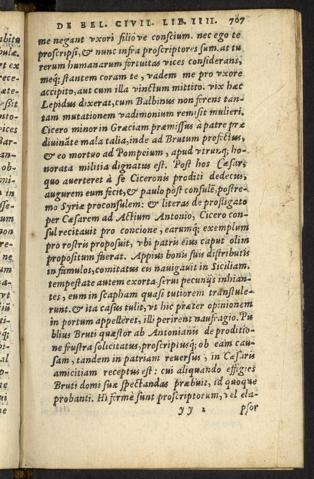 DE BEL. CIVIL. LIB. IIII. 707
me negant vxori filióve conscium. nec ego te
proscripsi, & nunc infra proscriptores sum. at tu
rerum humanarum fortuitas vices considerans,
meq; stantem coram te, vadem me pro vxore
accipito, aut cum illa vinctum mittito. vix hæc
Lepidus dixerat, cum Balbinus non ferens tan-
tam mutationem vadimonium remisit mulieri.
Cicero minor in Græciam præmissus à patre præ
diuináte mala talia, inde ad Brutum profectus,
& eo mortuo ad Pompeium, apud vtrunq; ho-
norata militia dignatus est. Post hos Cæsar,
quo auerteret à se Ciceronis proditi dedecus,
augurem eum fecit, & paulo pòst consulē, postre-
mo Syriæ proconsulem: & literas de profligato
per Cæsarem ad Actium Antonio, Cicero con-
sul recitauit pro concione, earumq; exemplum
pro rostris proposuit, vbi patris eius caput olim
propositum fuerat. Appius bonis suis distributis
in famulos, comitatus eis nauigauit in Siciliam.
tempestate autem exorta serui pecunijs inhian-
tes, eum in scapham quasi tutiorem transtule-
runt. & ita casus tulit, vt hic præter opinionem
in portum appelleret, illi perirent naufragio. Pu
blius Bruti quæstor ab Antonianis de proditio-
ne frustra solicitatus, proscriptusq; ob eam cau-
sam, tandem in patriam reuersus, in Cæsaris
amicitiam receptus est: cui aliquando effigies
Bruti domi suæ spectandas præbuit, id quoque
probanti. Hi fermè sunt proscriptorum, vel ela-
yy 2 psor